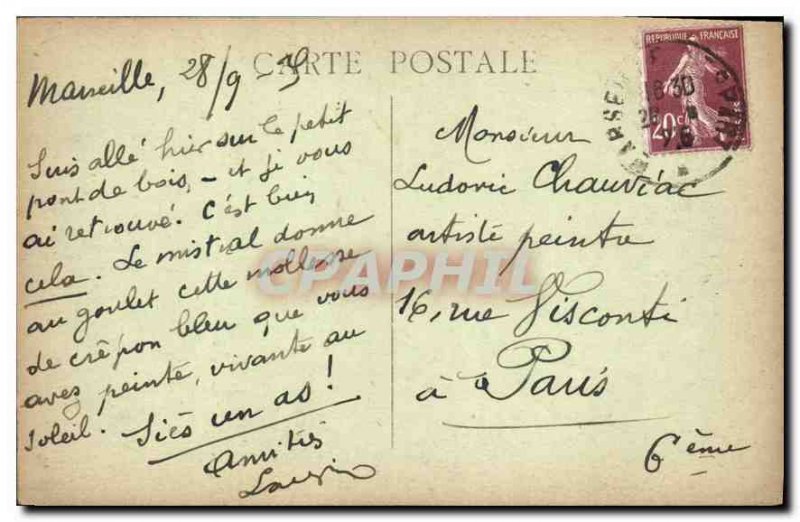 CARTE POSTALE
Marseille, 28/9
Suis allé hier sur le petit
pont de bois, - et j'y vous
ai retrouvé. C'est bien
cela. Le mistral donne
au goulet cette mollesse
de crêpon bleu que vous
avez peinte, vivante au
soleil. Siès un as!
Amitiés
Monsieur
Ludovic Chauviac
artiste peintre
16, rue Visconti
à Paris
6ème
REPUBLIQUE FRANÇAISE
20 c
MARSE
CPAPHIL